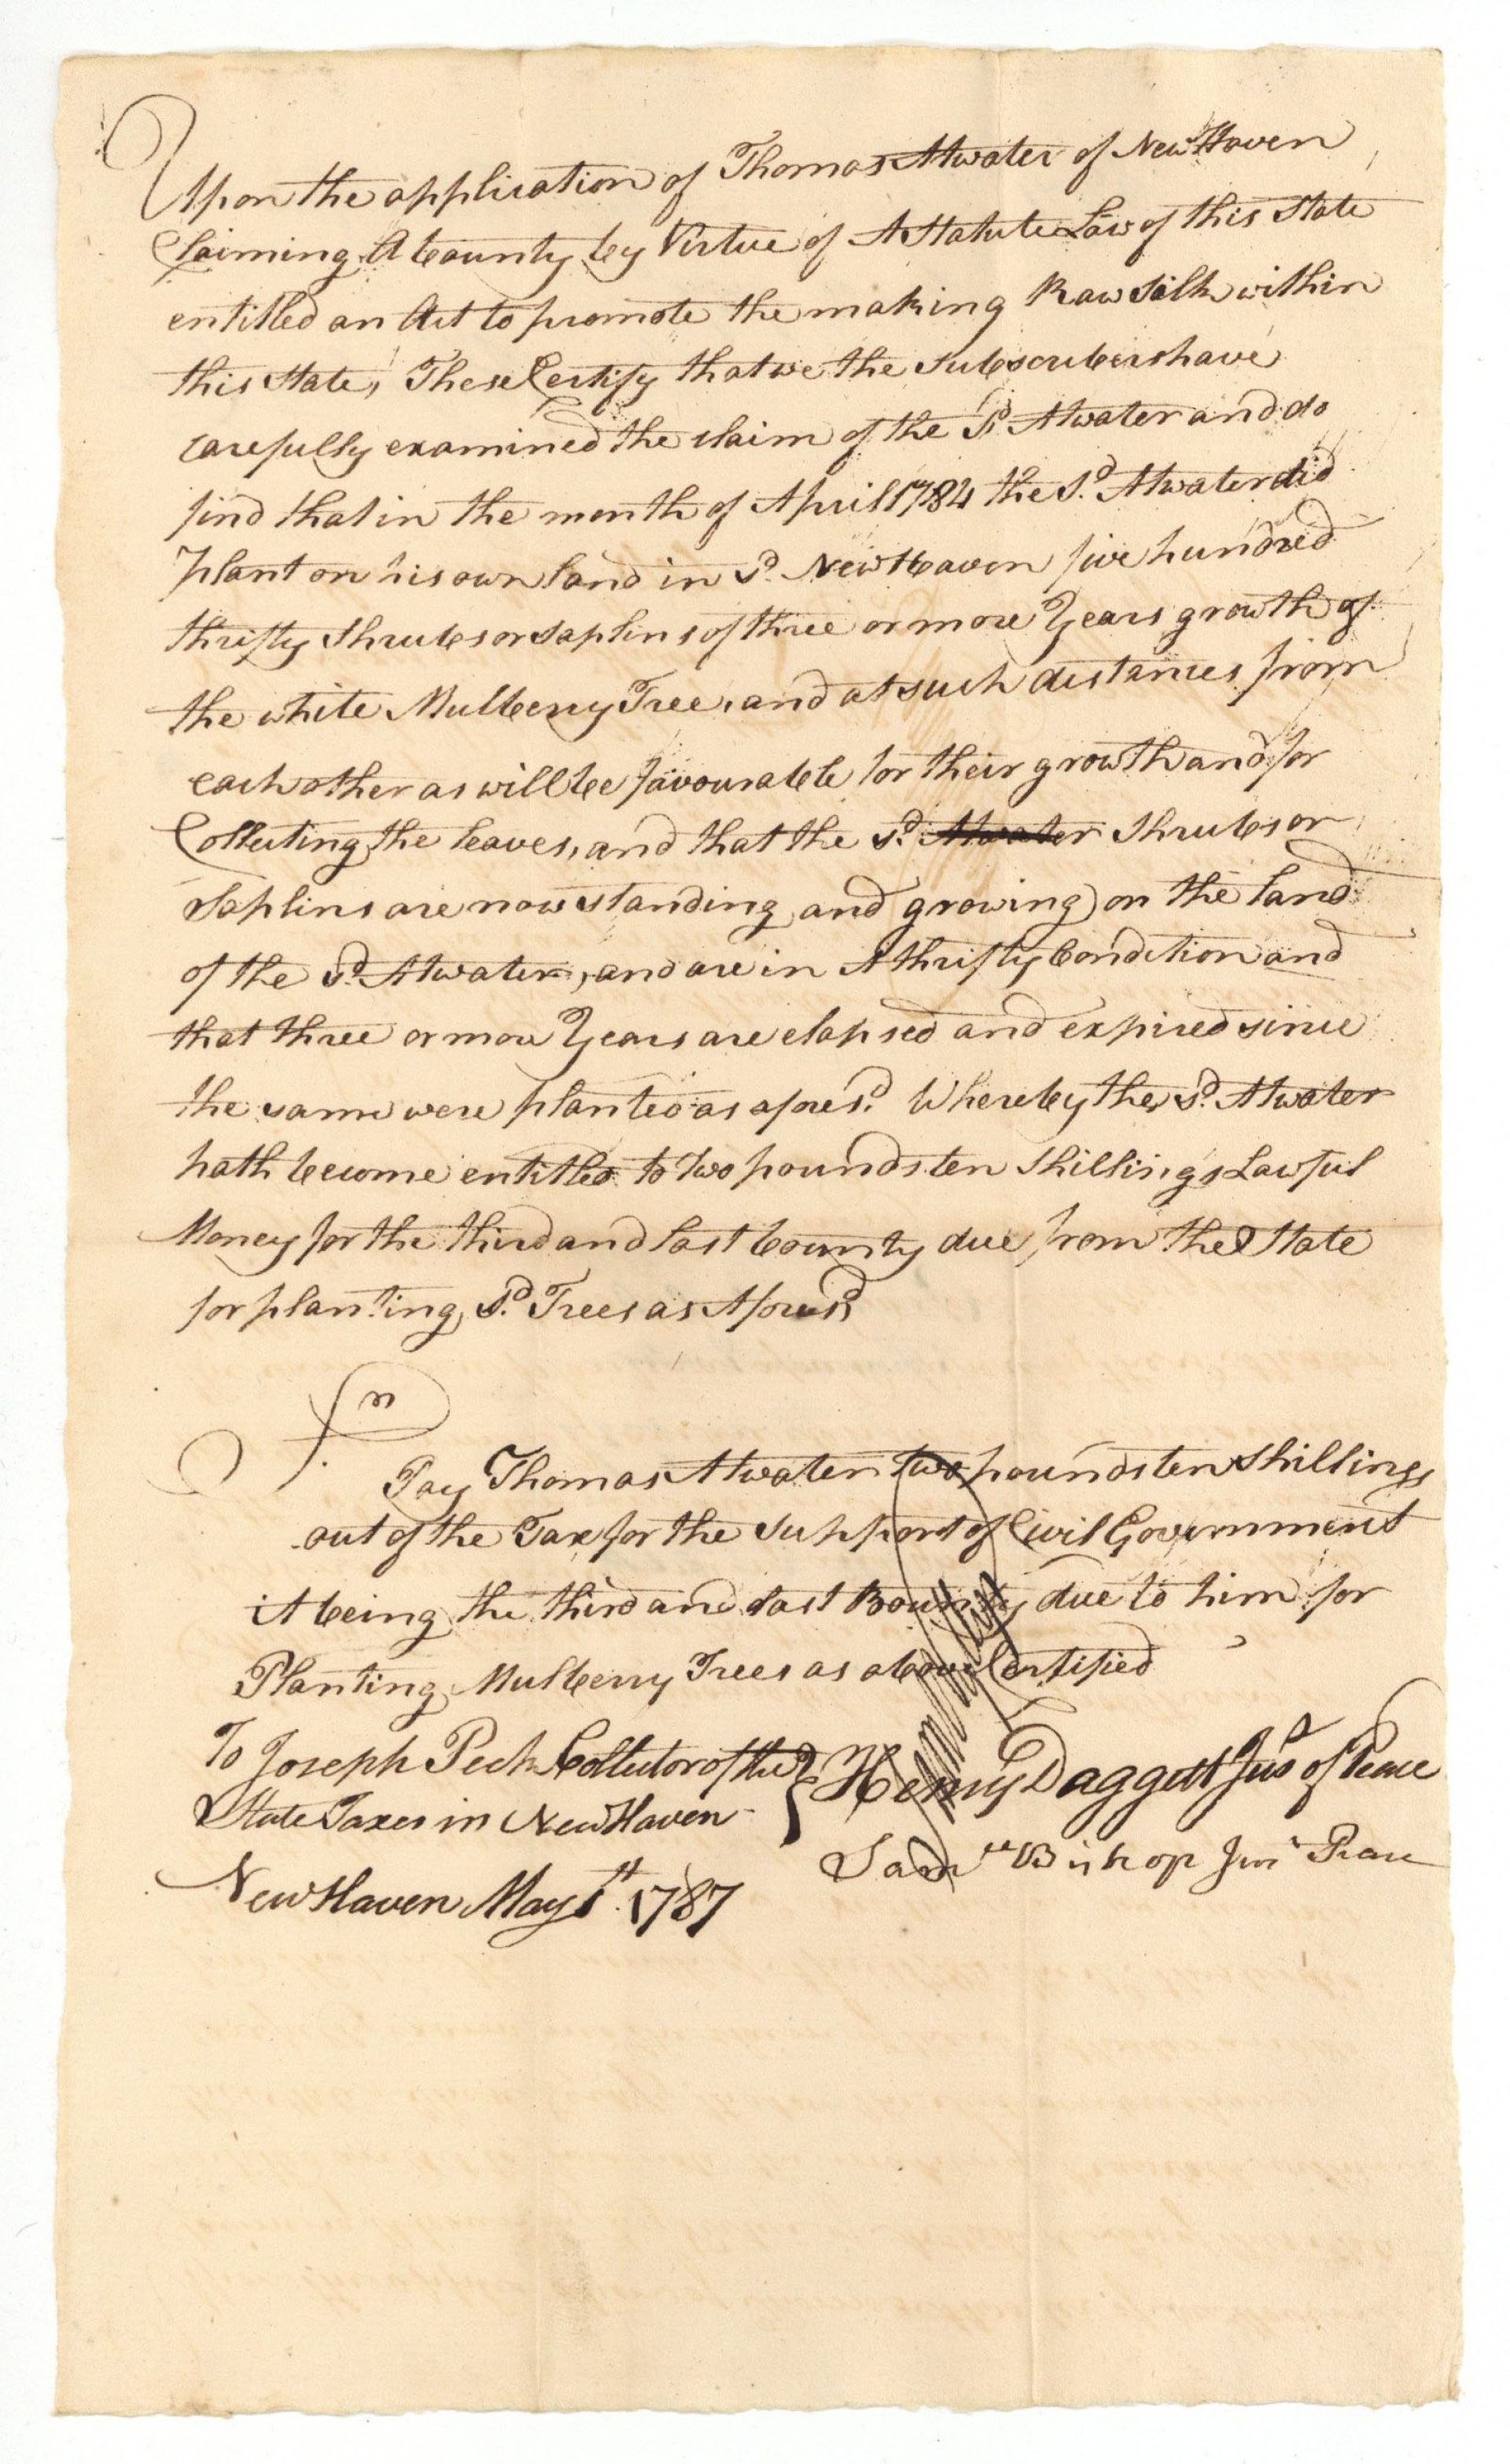 Upon the application of Thomas Atwater of New Haven
Claiming A bounty by Virtue of A Statute Law of this State
entitled an Act to promote the making Raw Silk within
this State, These Certify that we the Subscribers have
carefully examined the claim of the Sd. Atwater and do
find that in the month of April 1784 the Sd. Atwater did
Plant on his own land in Sd. New Haven five hundred
thrifty Shrubs or Saplins of three or more Years growth of
the white Mulberry Tree, and at such distances from
each other as will be favourable for their growth and for
Collecting the leaves, and that the Sd. Atwater Shrubs or
Saplins are now standing and growing on the land
of the Sd. Atwater, and are in A thrifty Condition and
that three or more Years are elapsed and expired since
the same were planted as afores.d Whereby the Sd. Atwater
hath become entitled to two pounds ten Shillings Lawful
Money for the third and last bounty due from the State
for planting Sd. Trees as Aforesd.
Sr.
Pay Thomas Atwater two pounds ten Shillings
out of the Tax for the Support of Civil Government
it being the third and last Bounty due to him for
Planting Mulberry Trees as above Certified
To Joseph Peck Collector of the
State Taxes in New Haven
Henry Daggett Jus of Peace
Samll Bishop Jus Peace
New Haven May 1st. 1787